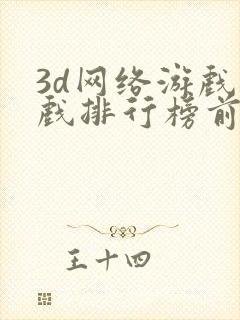 3d网络游戏
戏排行榜前
王十四